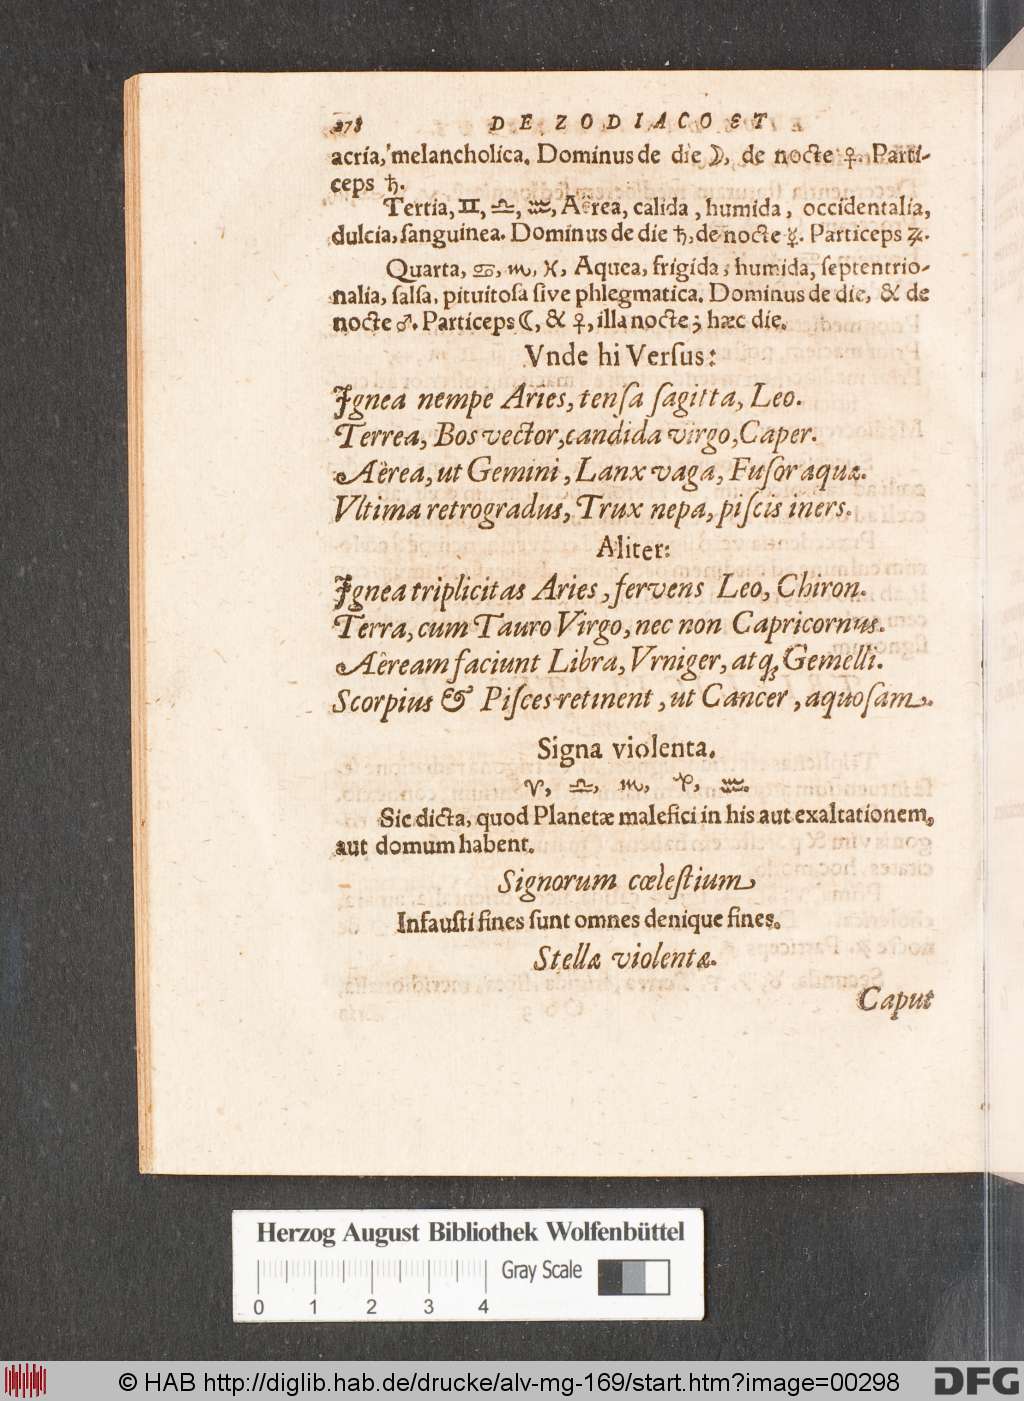 278 DE ZODIACO ET
acria, melancholica. Dominus de die ☽, de nocte ♀. Parti-
ceps ♄.
Tertia, ♊, ♎, ♒, Aërea, calida, humida, occidentalia,
dulcia, ſanguinea. Dominus de die ♄, de nocte ☿. Particeps ♃.
Quarta, ♋, ♏, ♓, Aquea, frigida, humida, ſeptentrio-
nalia, ſalſa, pituitoſa ſive phlegmatica. Dominus de die, & de
nocte ♂. Particeps ☾, & ♀, illa nocte; hæc die.
Vnde hi Verſus:
Ignea nempe Aries, tenſa ſagitta, Leo.
Terrea, Bos vector, candida virgo, Caper.
Aërea, ut Gemini, Lanx vaga, Fuſor aquæ.
Vltima retrogradus, Trux nepa, piſcis iners.
Aliter:
Ignea triplicitas Aries, fervens Leo, Chiron.
Terra, cum Tauro Virgo, nec non Capricornus.
Aëream faciunt Libra, Vrniger, atq; Gemelli.
Scorpius & Piſces retinent, ut Cancer, aquoſam.
Signa violenta.
♈, ♎, ♏, ♑, ♒.
Sic dicta, quod Planetæ malefici in his aut exaltationem,
aut domum habent.
Signorum cœleſtium
Infauſti fines ſunt omnes denique fines.
Stellæ violentæ.
Caput
Herzog August Bibliothek Wolfenbüttel
Gray Scale
0 1 2 3 4
© HAB http://diglib.hab.de/drucke/alv-mg-169/start.htm?image=00298
DFG